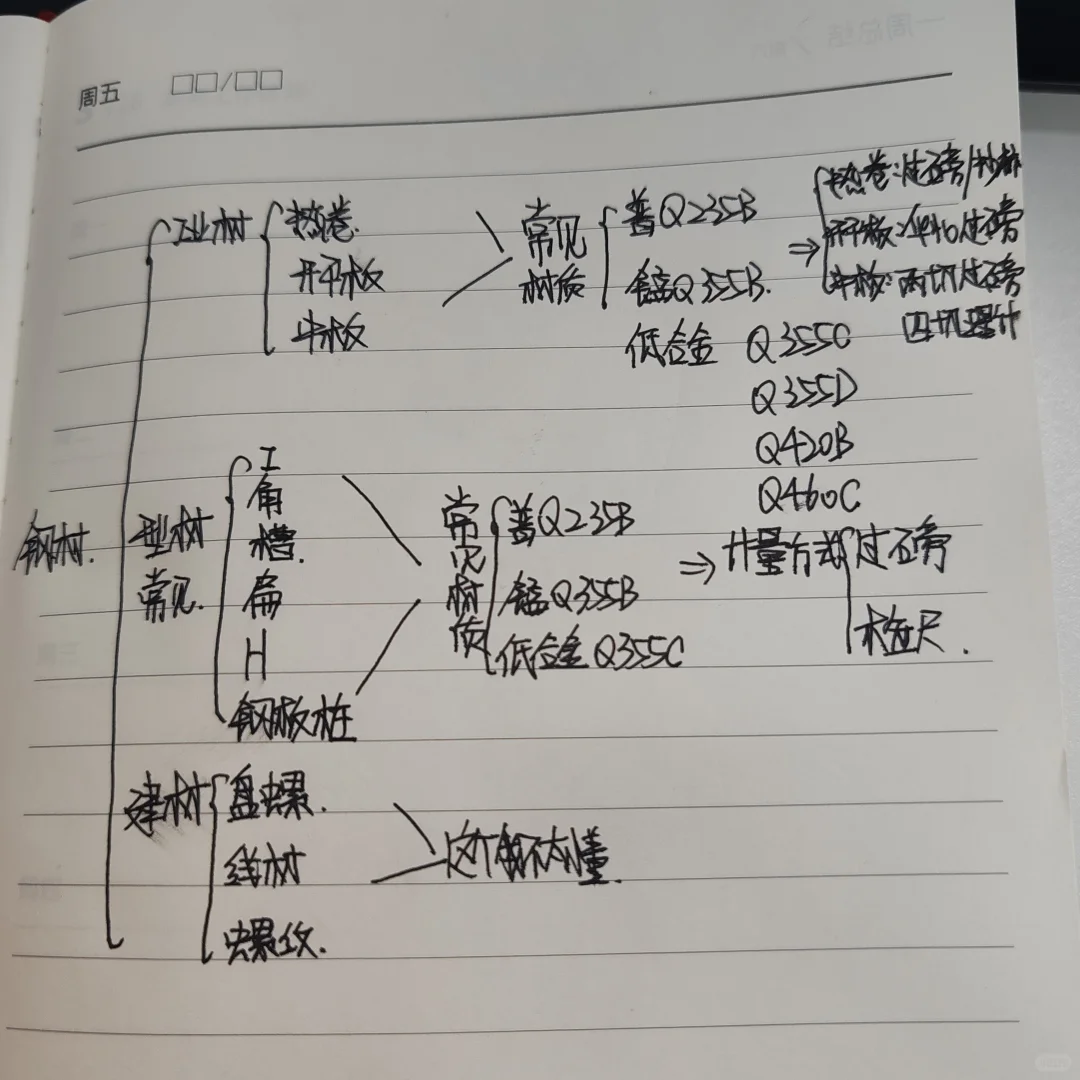 周五 □□/□□
钢材.
工业材
热卷.
开平板
中板
常见
材质
普Q235B
锰Q355B.
低合金 Q355C
Q355D
Q420B
Q460C
⇒
热卷:过磅/抄牌
开平板:单包过磅
中板:两切过磅
四切理计
型材
常见.
工
角
槽.
扁
H
钢板桩
常见材质
普Q235B
锰Q355B
低合金Q355C
⇒ 计量方式
过磅
检尺.
建材
盘螺.
线材
螺纹.
这个我不太懂.